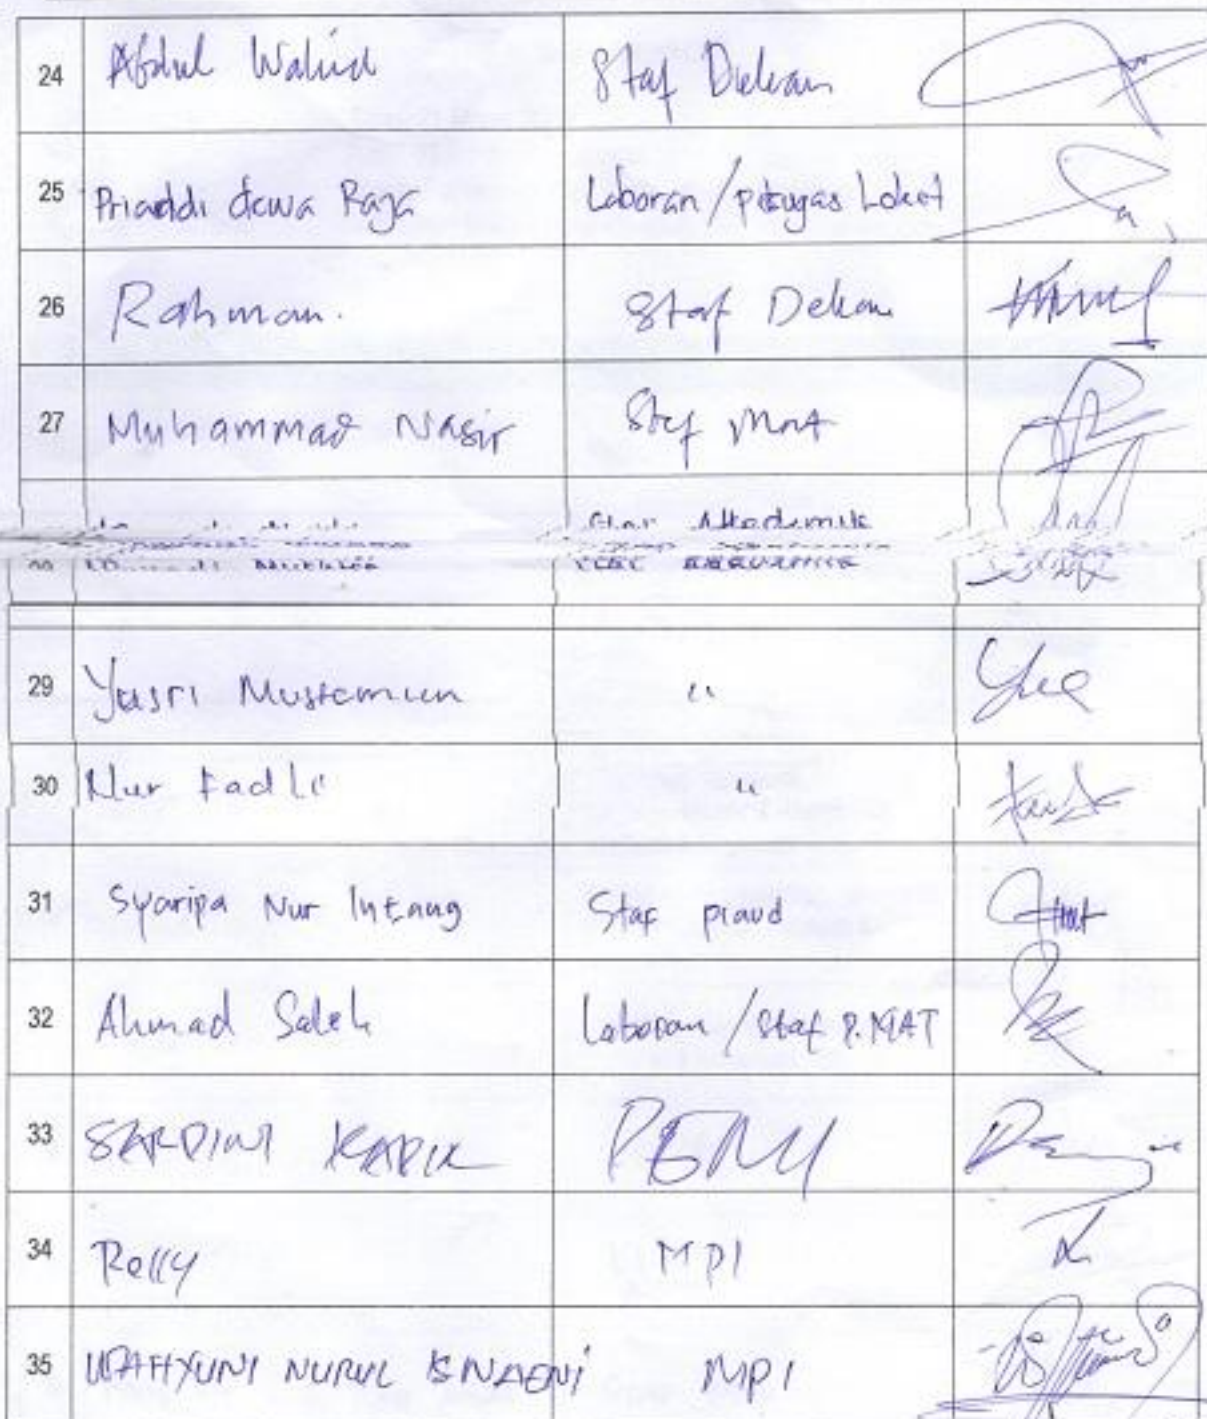 24 Abdul Wahid Staf Dekan
25 Priaddi dewa Raja Laboran / petugas Loket
26 Rahman. Staf Dekan
27 Muhammad Nasir Staf
Staf Akademik
29 Yusri Mustemiun "
30 Nur Fadli "
31 Syaripa Nur Intang Staf piaud
32 Ahmad Saleh Laboran / Staf P.MAT
33 SARDINI
34 Relly MPI
35 WAHYUNI NURUL ISNAENI MPI